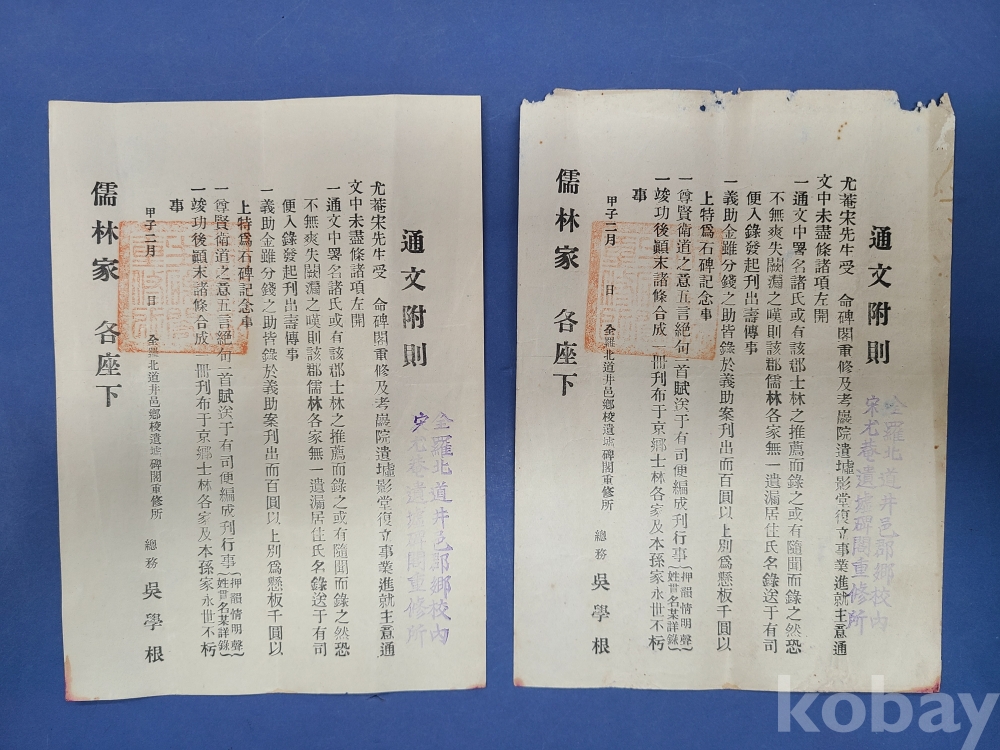 通文附則
尤菴宋先生受　命碑閣重修及考巖院遺墟影堂復立事業進就主意通
文中未盡條諸項左開
一通文中署名諸氏或有該郡士林之推薦而錄之或有隨聞而錄之然恐
不無爽失闕漏之嘆則該郡儒林各家無一遺漏居住氏名錄送于有司
便入錄發起刊出壽傳事
一義助金雖分錢之助皆錄於義助案刊出而百圓以上別爲懸板千圓以
上特爲石碑記念事
一尊賢衛道之意五言絶句一首賦送于有司便編成刊行事(押韻情明聲
姓貫名某詳錄)
一竣功後顚末諸條合成一冊刊布于京鄉士林各家及本孫家永世不朽
事
甲子二月　日　全羅北道井邑鄉校遺墟碑閣重修所
總務　吳學根
儒林家　各座下
全羅北道井邑郡鄉校內
宋尤菴遺墟碑閣重修所
通文附則
尤菴宋先生受　命碑閣重修及考巖院遺墟影堂復立事業進就主意通
文中未盡條諸項左開
一通文中署名諸氏或有該郡士林之推薦而錄之或有隨聞而錄之然恐
不無爽失闕漏之嘆則該郡儒林各家無一遺漏居住氏名錄送于有司
便入錄發起刊出壽傳事
一義助金雖分錢之助皆錄於義助案刊出而百圓以上別爲懸板千圓以
上特爲石碑記念事
一尊賢衛道之意五言絶句一首賦送于有司便編成刊行事(押韻情明聲
姓貫名某詳錄)
一竣功後顚末諸條合成一冊刊布于京鄉士林各家及本孫家永世不朽
事
甲子二月　日　全羅北道井邑鄉校遺墟碑閣重修所
總務　吳學根
儒林家　各座下
全羅北道井邑郡鄉校內
宋尤菴遺墟碑閣重修所
kobay